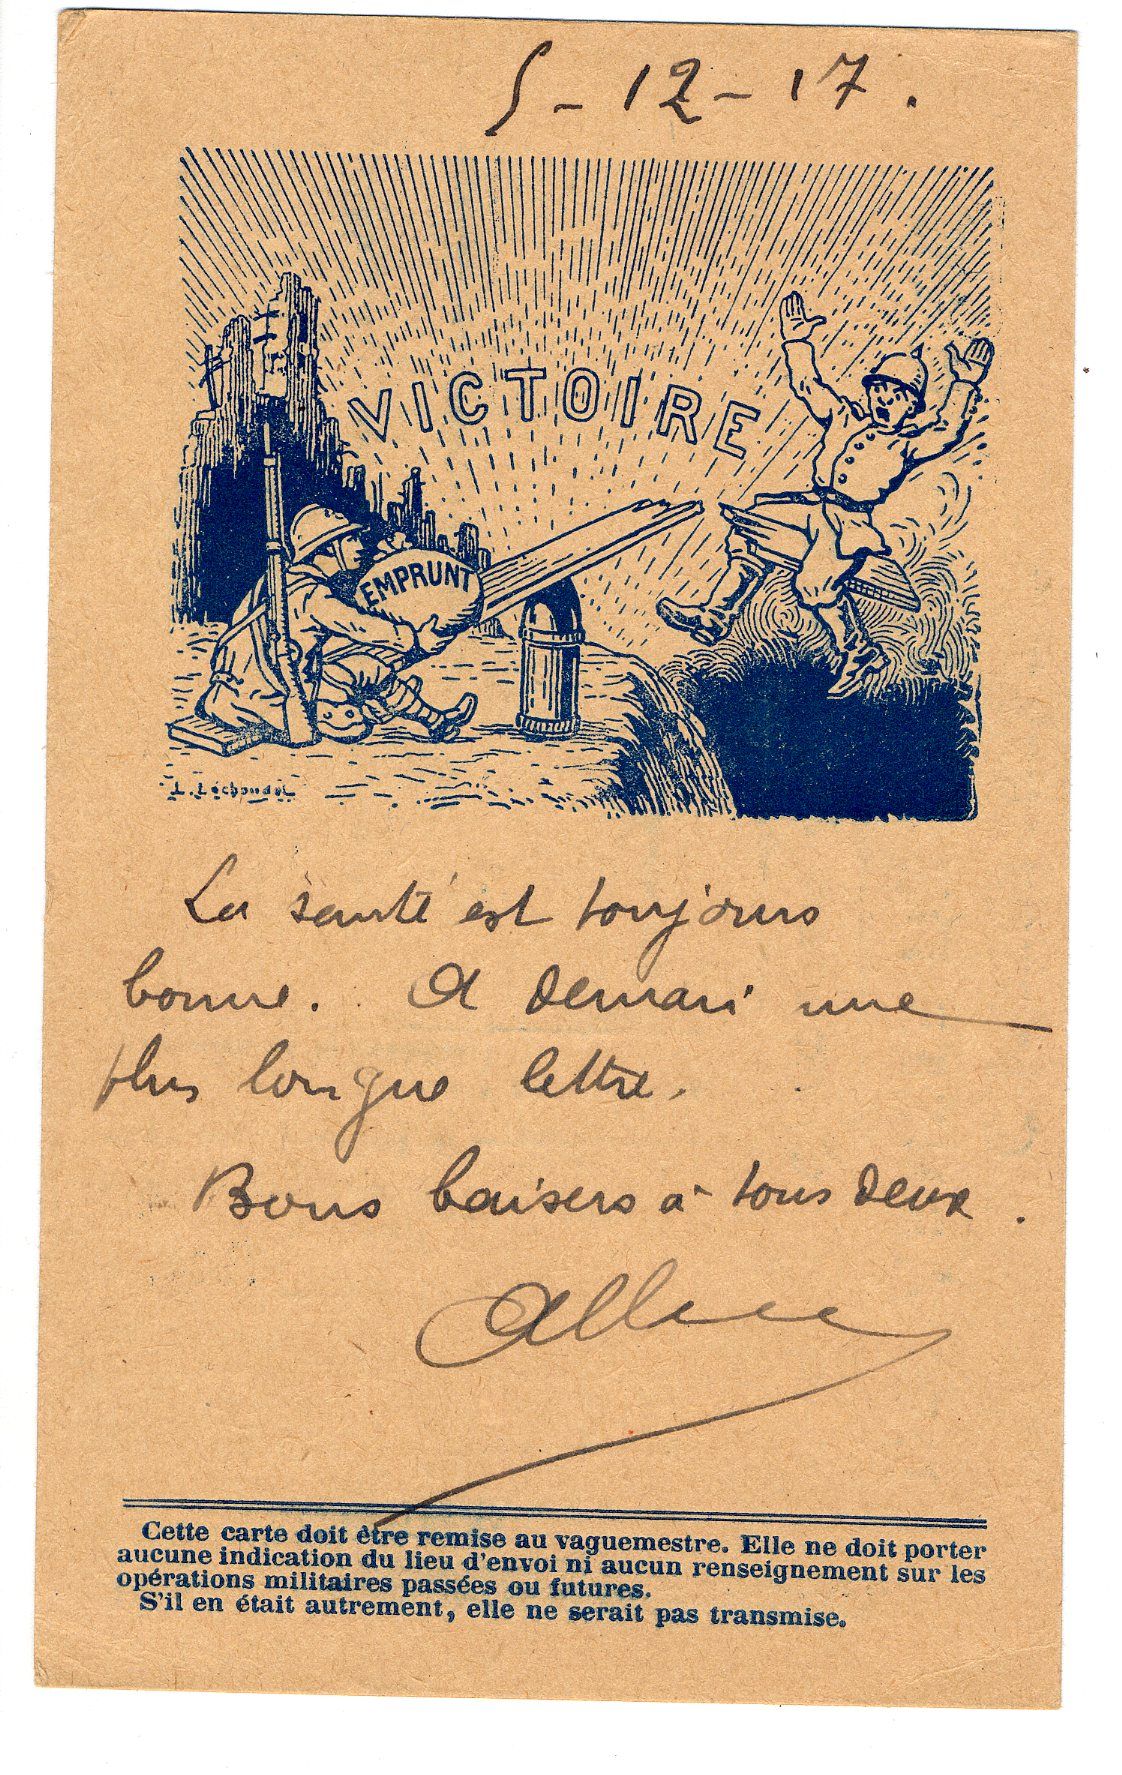 5-12-17.
VICTOIRE
EMPRUNT
La santé est toujours
bonne. A demain une
plus longue lettre.
Bons baisers à tous deux.
Cette carte doit être remise au vaguemestre. Elle ne doit porter
aucune indication du lieu d'envoi ni aucun renseignement sur les
opérations militaires passées ou futures.
S'il en était autrement, elle ne serait pas transmise.